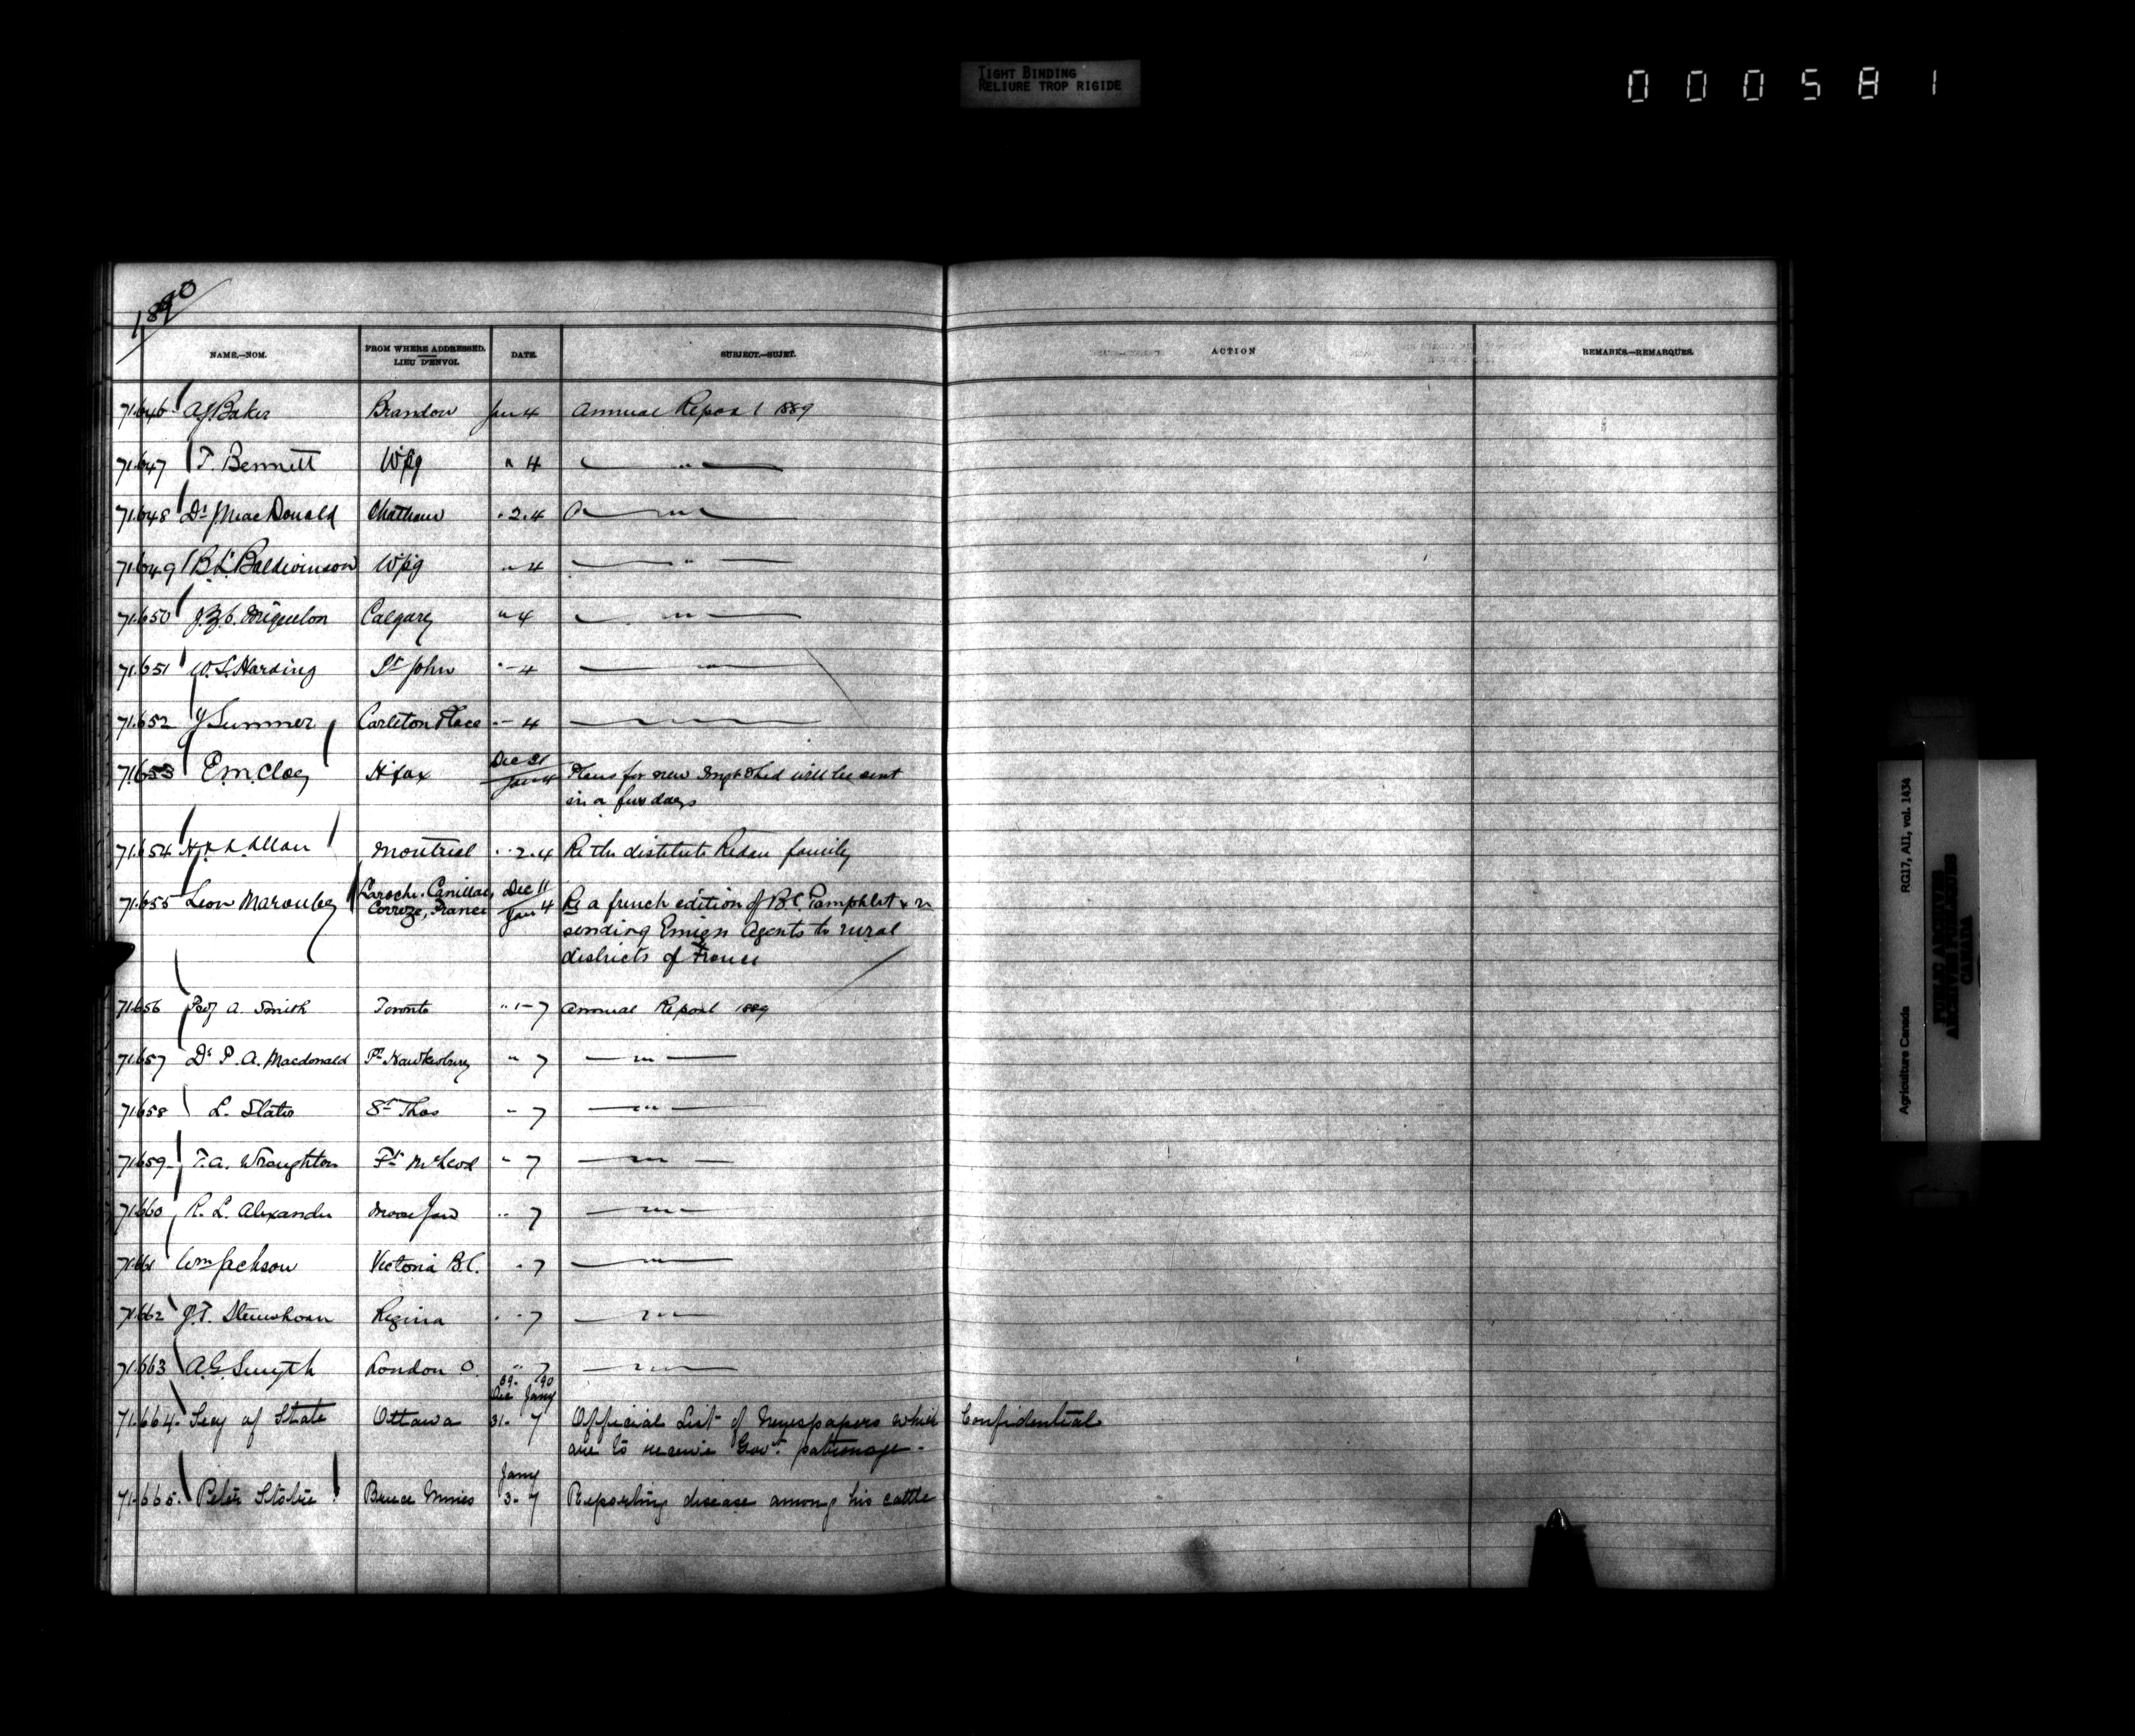 TIGHT BINDING
RELIURE TROP RIGIDE
000581
1890
NAME.—NOM. FROM WHERE ADDRESSED. LIEU D'ENVOI. DATE. SUBJECT.—SUJET. ACTION REMARKS.—REMARQUES.
71.646 A J Baker Brandon Jan 4 Annual Report 1889
71.647 T. Bennett Wpg " 4 — " —
71.648 Dr J MacDonald Chatham " 2. 4 — " —
71.649 B. L. Baldwinson Wpg " 4 — " —
71.650 J. Z. C. Miquelon Calgary " 4 — " —
71.651 W. S. Harding St John " 4 — " —
71.652 J Sumner Carleton Place " 4 — " —
71.653 E. M. Clay H'fax Dec 31 Jan 4 Plans for new Imgt Shed will be sent
in a few days
71.654 H & A Allan Montreal " 2. 4 Re the distitute Redan family
71.655 Leon Marouby Laroche Canillac Correze, France Dec 11 Jan 4 Re a french edition of B.C. Pamphlet & re
sending Emign Agents to rural
districts of France
71.656 A. Smith Toronto " 1 – 7 Annual Report 1889
71.657 Dr P. A. Macdonald Pt Hawkesbury " 7 — " —
71.658 L. Slater St Thos " 7 — " —
71.659 T. A. Wroughton Ft McLeod " 7 — " —
71.660 R. L. Alexander Moose Jaw " 7 — " —
71.661 Wm Jackson Victoria B.C. " 7 — " —
71.662 J. T. Stemshorn Regina " 7 — " —
71.663 A. G. Smyth London O. " 7 — " —
71.664. Secy of State Ottawa 89. Dec 31. 90 Jany 7 Official List of Newspapers which Confidential
are to receive Govt. patronage.
71.665. Peter Stobie Bruce Mines Jany 3. 7 Reporting disease among his cattle
Agriculture Canada RG17, AII, vol. 1434
PUBLIC ARCHIVES
ARCHIVES PUBLIQUES
CANADA